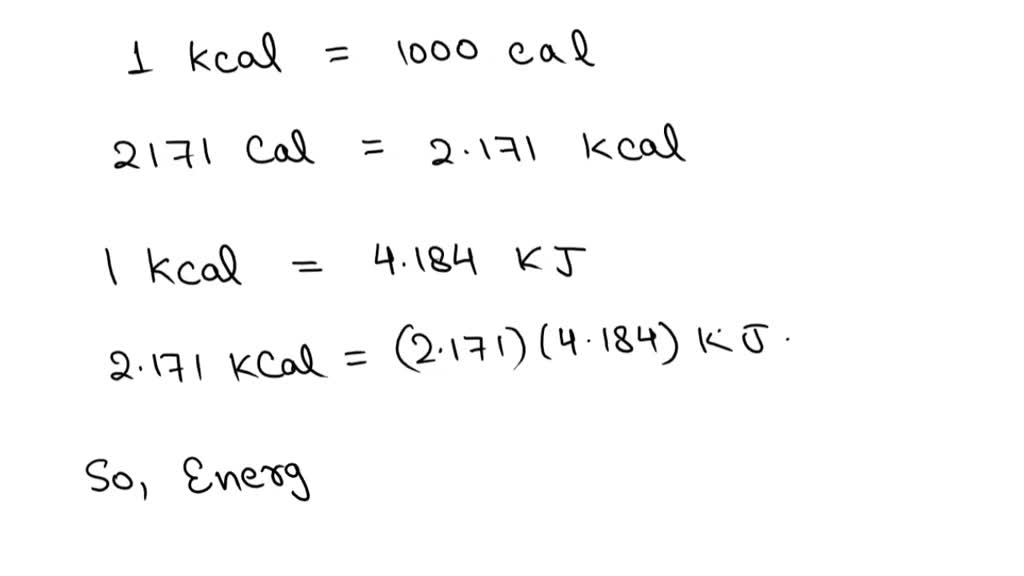 1 kcal = 1000 cal
2171 Cal = 2.171 kcal
1 kcal = 4.184 KJ
2.171 KCal = (2.171)(4.184) KJ.
So, Energ